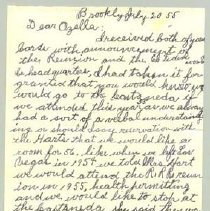 Brooklyn July, 20 55
Dear Ozella:
I received both of your
cards with announcement of
the Reunion and the
headquarters. I had taken it for
granted that you would know we
would go to the Castaneda if
we attended this year as we always
had a sort of a verbal understand
ing or should I say reservation with
the Harts that we would like a
room for St. Like when in Las
Vegas in 1954 we told Mrs Hart
we would attend the R.R. Reun
ion in 1955, health permitting
and we would like to stop at
the Castaneda, she said they